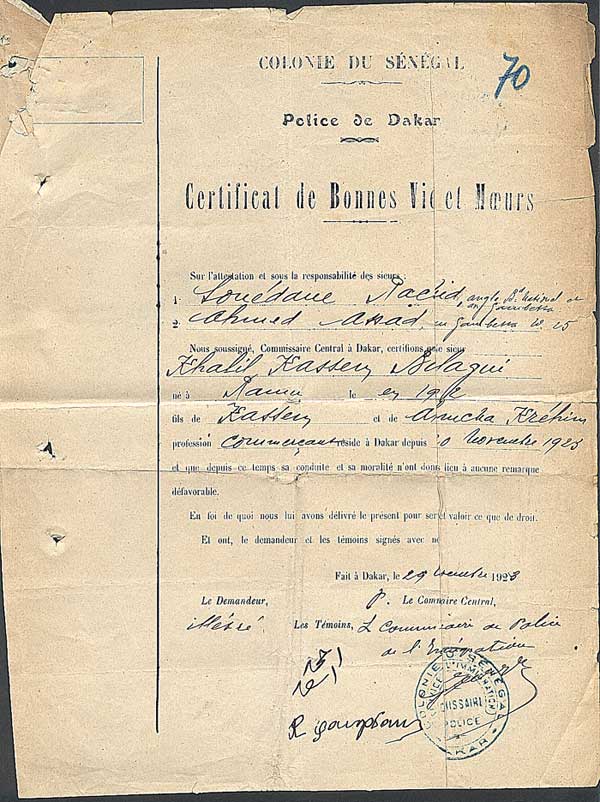 COLONIE DU SÉNÉGAL
70
Police de Dakar
Certificat de Bonnes Vie et Mœurs
Sur l'attestation et sous la responsabilité des sieurs :
1. Souédane Racid, angle Bd National et
av. Gambetta
2. Ahmed Assad, av Gambetta N. 25
Nous soussigné, Commissaire Central à Dakar, certifions que le sieur
Khalil Kassem
né à le en 19
fils de Kassem et de
profession Commerçant réside à Dakar depuis 10 Novembre 1923
et que depuis ce temps sa conduite et sa moralité n'ont donné lieu à aucune remarque
défavorable.
En foi de quoi nous lui avons délivré le présent pour servir et valoir ce que de droit.
Et ont, le demandeur et les témoins signés avec
Fait à Dakar, le 29 1923
Le Demandeur, P. Le Commissaire Central,
illétré Les Témoins, Le Commissaire de Police
de l'Emigration
COLONIE DU SÉNÉGAL
SERVICE DE L'IMMIGRATION
COMMISSAIRE
POLICE
DAKAR